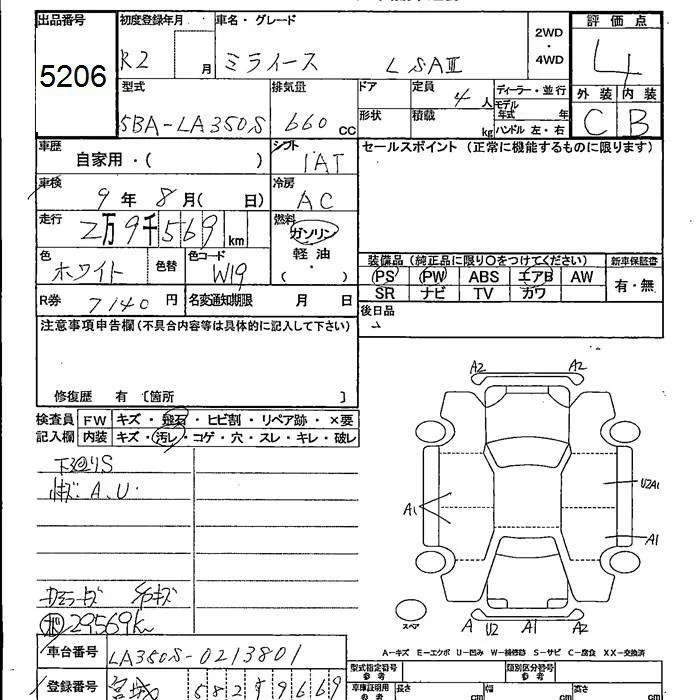 出品番号 初度登録年月 車名・グレード 2WD・4WD 評価点
5206 R2 月 ミライース LSAⅢ 4
型式 排気量 ドア 定員 4人 ディーラー・並行 外装 内装
5BA-LA350S 660cc 形状 積載 kg モデル年式 年 C B
ハンドル 左・右
車歴 自家用・( ) シフト IAT セールスポイント(正常に機能するものに限ります)
車検 9年8月( 日) 冷房 AC
走行 2万9千569km 燃料 ガソリン 軽油・( )
色 ホワイト 色替 色コード W19 装備品(純正品に限り○をつけてください) 新車保証書
PS PW ABS エアB AW 有・無
R券 7140円 名変通知期限 月 日 SR ナビ TV カワ
注意事項申告欄(不具合内容等は具体的に記入して下さい) 後日品
修復歴 有 〔箇所 〕
検査員記入欄 FW キズ・飛石・ヒビ割・リペア跡・×要
内装 キズ・汚レ・コゲ・穴・スレ・キレ・破レ
下廻りS
A.U.
29569k
A2 A2
A1 U2A1
A1
スペア A U2 A1 A2
A-キズ E-エクボ U-凹み W-補修跡 S-サビ C-腐食 XX-交換済
車台番号 LA350S-0213801 型式指定番号 参考 類別区分番号 参考
登録番号 宮城 582 9669 車庫証明用 参考 長さ cm 幅 cm 高さ cm